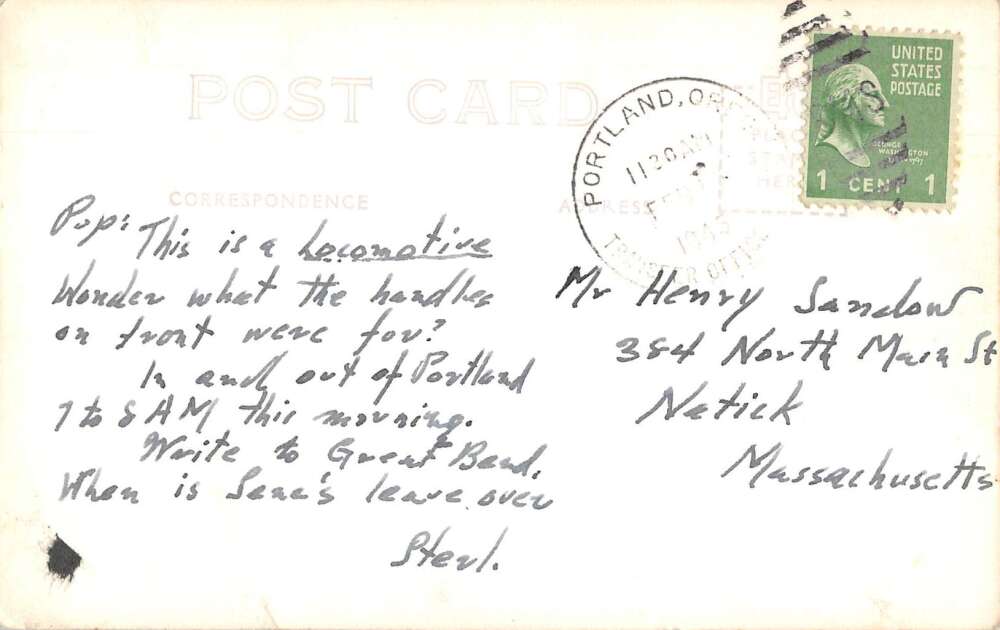 POST CARD
CORRESPONDENCE
ADDRESS
PLACE
STAMP
HERE
PORTLAND, ORE
11 30 AM
1945
TRANSFER OFFICE
UNITED
STATES
POSTAGE
GEORGE
WASHINGTON
1 CENT 1
Pop:
This is a Locomotive
Wonder what the handles
on front were for?
In and out of Portland
7 to 8 AM this morning.
Write to Great Bend.
When is Sena's leave over
Sterl.
Mr Henry Sandow
384 North Main St
Natick
Massachusetts